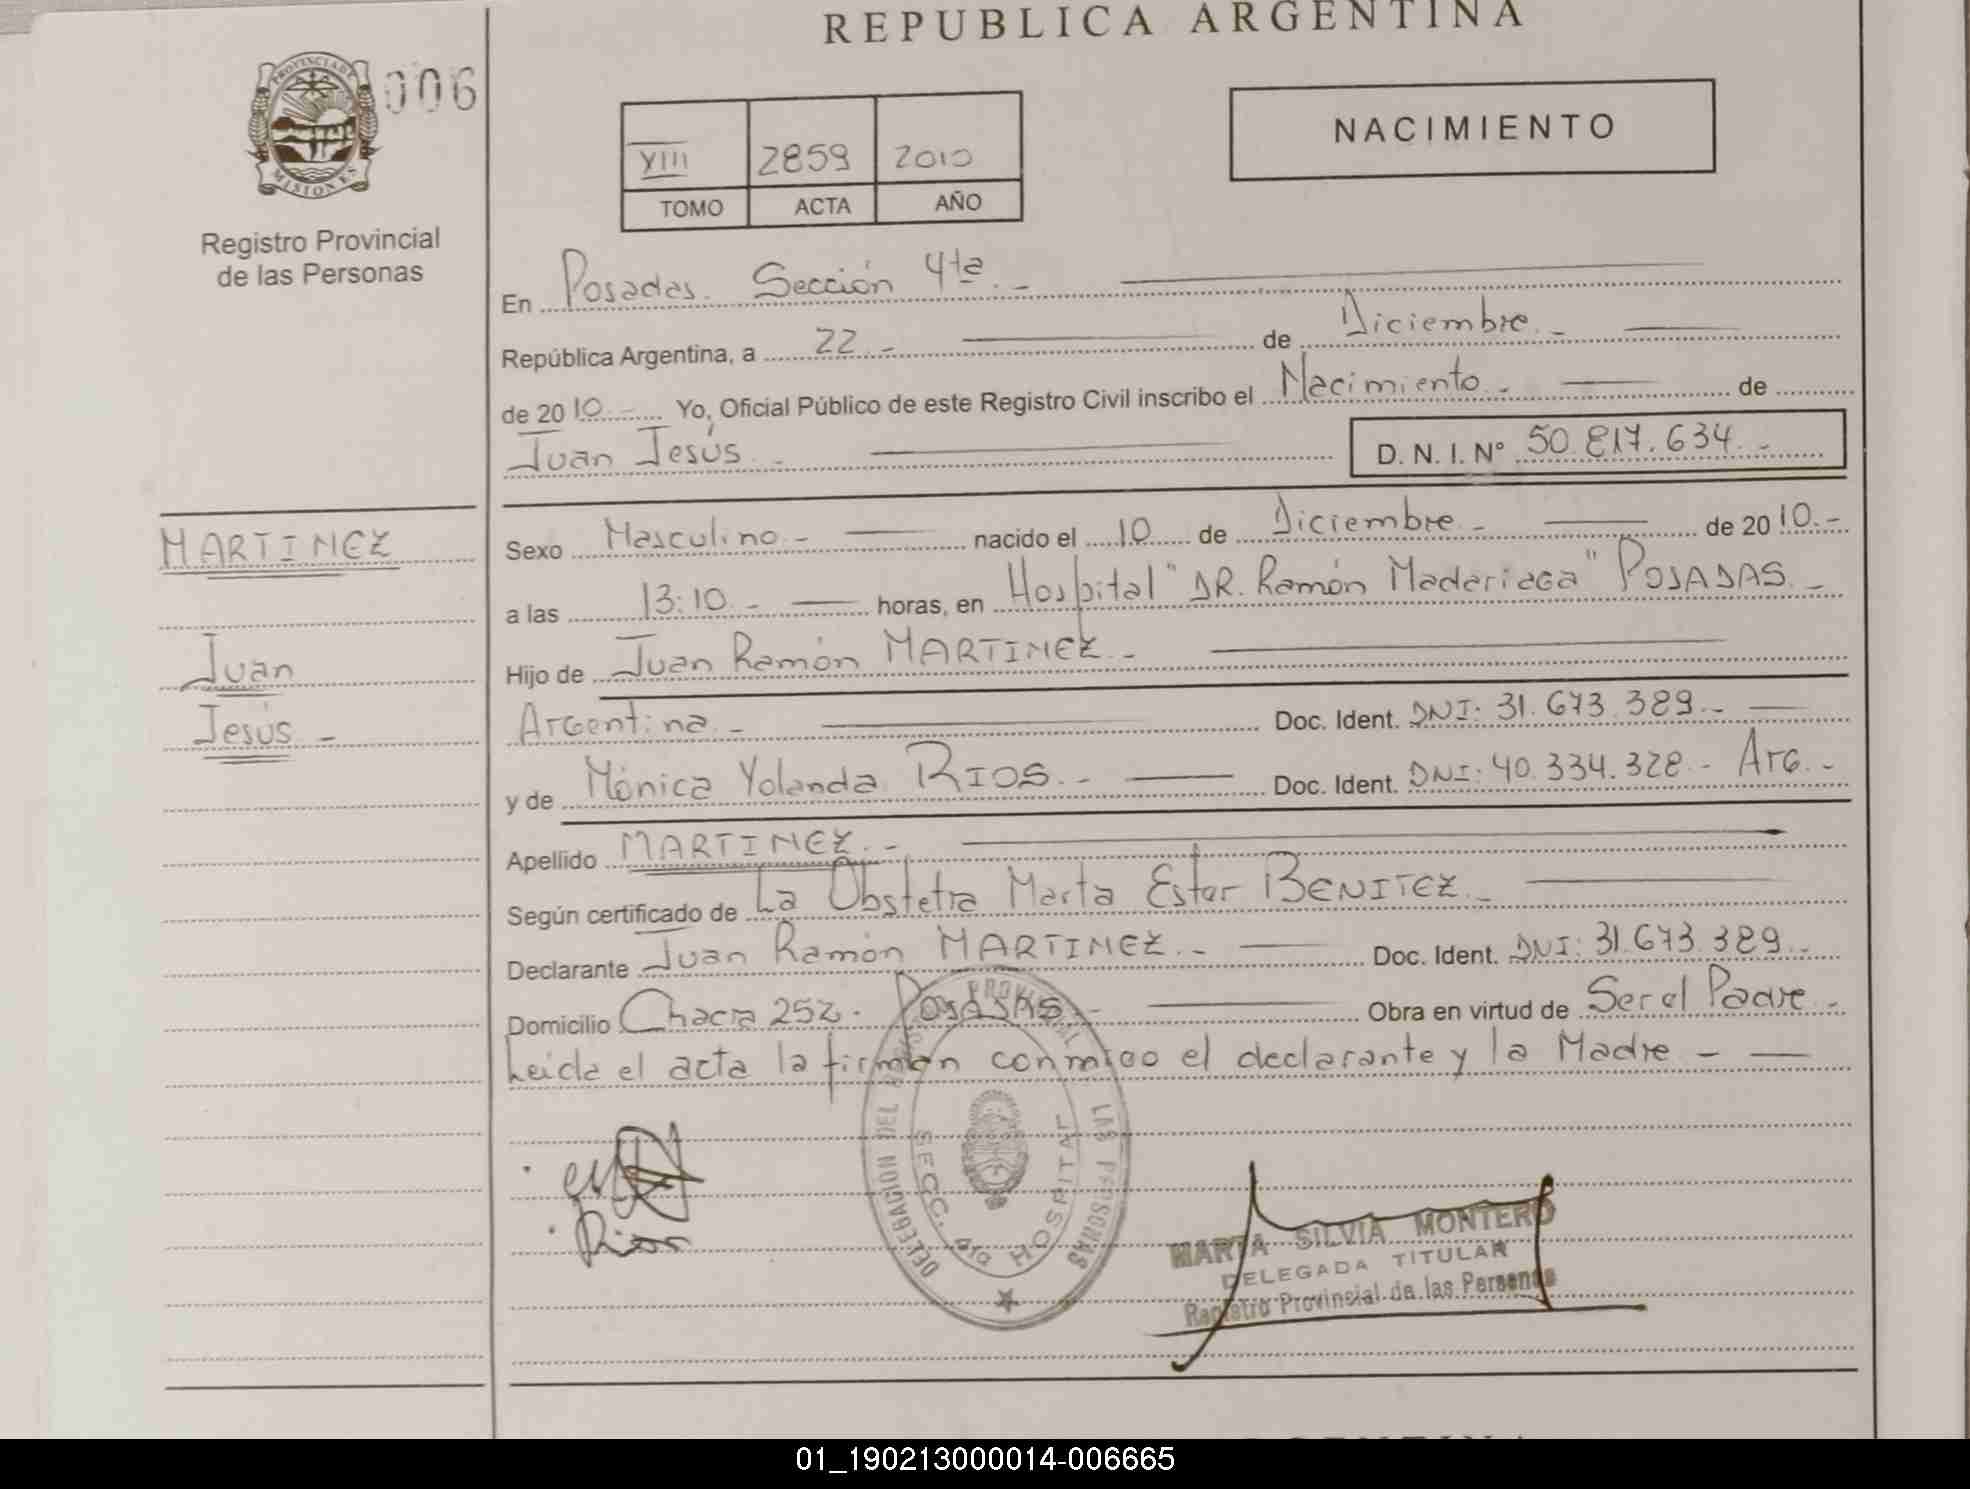 REPUBLICA ARGENTINA
PROVINCIA DE
MISIONES
006
NACIMIENTO
XIII 2859 2010
TOMO ACTA AÑO
Registro Provincial
de las Personas
En Posadas. Sección 4ta.-
República Argentina, a 22.- de Diciembre.-
de 2010.- Yo, Oficial Público de este Registro Civil inscribo el Nacimiento.- de
Juan Jesús.- D. N. I. Nº 50.817.634.-
MARTINEZ
Juan
Jesús.-
Sexo Masculino.- nacido el 10 de Diciembre.- de 2010.-
a las 13:10.- horas, en Hospital "DR. Ramón Madariaga" POSADAS.-
Hijo de Juan Ramón MARTINEZ.-
Argentina.- Doc. Ident. DNI: 31.673.389.-
y de Mónica Yolanda RIOS.- Doc. Ident. DNI: 40.334.328.- Arg.-
Apellido MARTINEZ.-
Según certificado de La Obstetra Marta Ester BENITEZ.-
Declarante Juan Ramón MARTINEZ.- Doc. Ident. DNI: 31.673.389.-
Domicilio Chacra 252. POSADAS.- Obra en virtud de Ser el Padre.-
Leida el acta la firman conmigo el declarante y la Madre -
DELEGACION DEL PROVINCIAL LAS PERSONAS
SECC. 4ta HOSPITAL
Rios
MARTA SILVIA MONTERO
DELEGADA TITULAR
Registro Provincial de las Personas
01_190213000014-006665